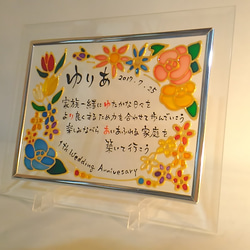 ゆりあ 2017.7.25
家族一緒に ゆたかな日々を
より良くするため力を合わせて歩んでいこう
楽しみながら あいあふれる家庭を
築いて行こう
1th Wedding Anniversary